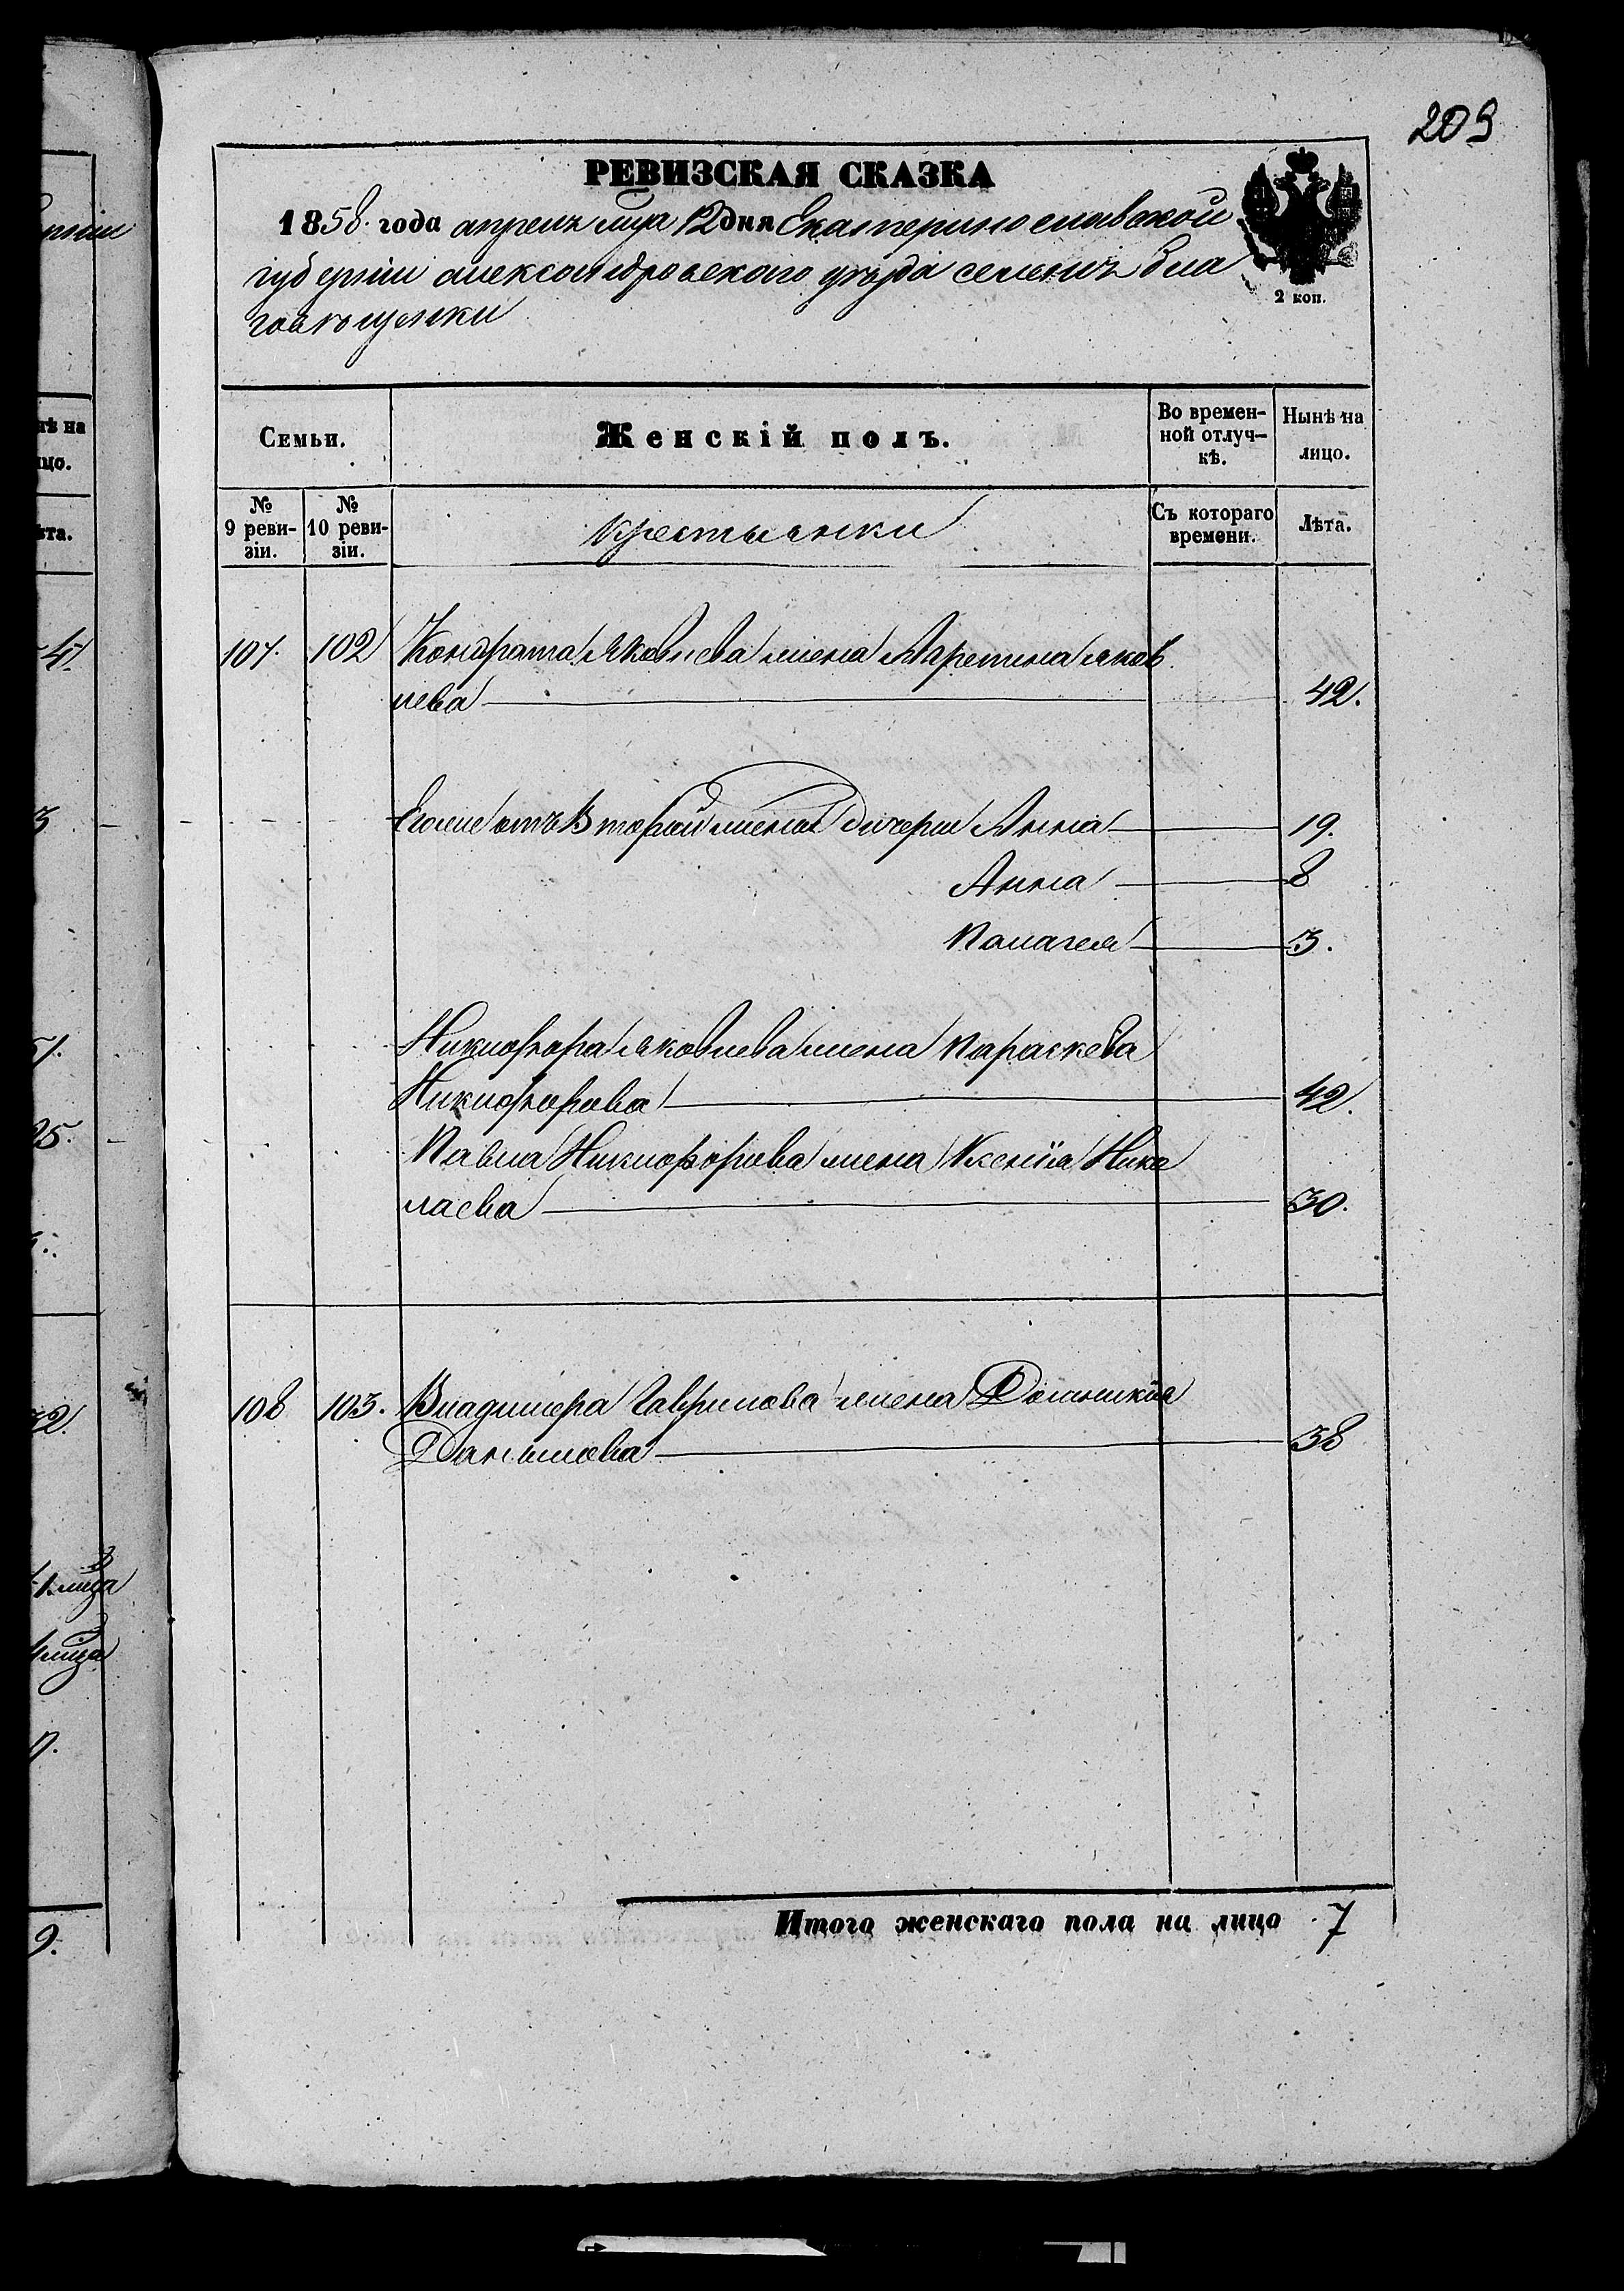 209
РЕВИЗСКАЯ СКАЗКА
1858. года апреля мца 12 дня Екатеринославской
губерніи александровского уѣзда селенія Бла
говѣщенки
2 коп.
Семьи.
Женскій полъ.
Во времен-
ной отлуч-
кѣ.
Нынѣ на
лицо.
№
9 реви-
зіи.
№
10 реви-
зіи.
крестьянки
Съ котораго
времени.
Лѣта.
107. 102 Кондрата Яковлева жена Яков
лева 42.
Егоже отъ Второй жены Дочери Анна 19.
Анна 8
Палагея 3.
Никифора Яковлева жена Параскева
Никифорова 42.
Павла Никифорова жена Ксенія Нико
лаева 30.
108 103. Владимера Гаврилова жена Домникія
Данилова 38
Итого женскаго пола на лицо 7